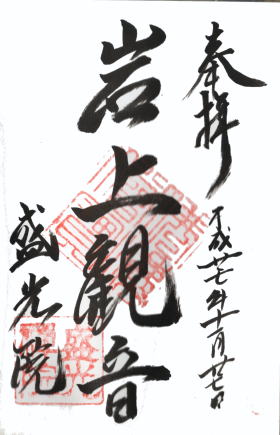 奉拝
平成廿七年十一月廿七日
岩上觀音
盛光院